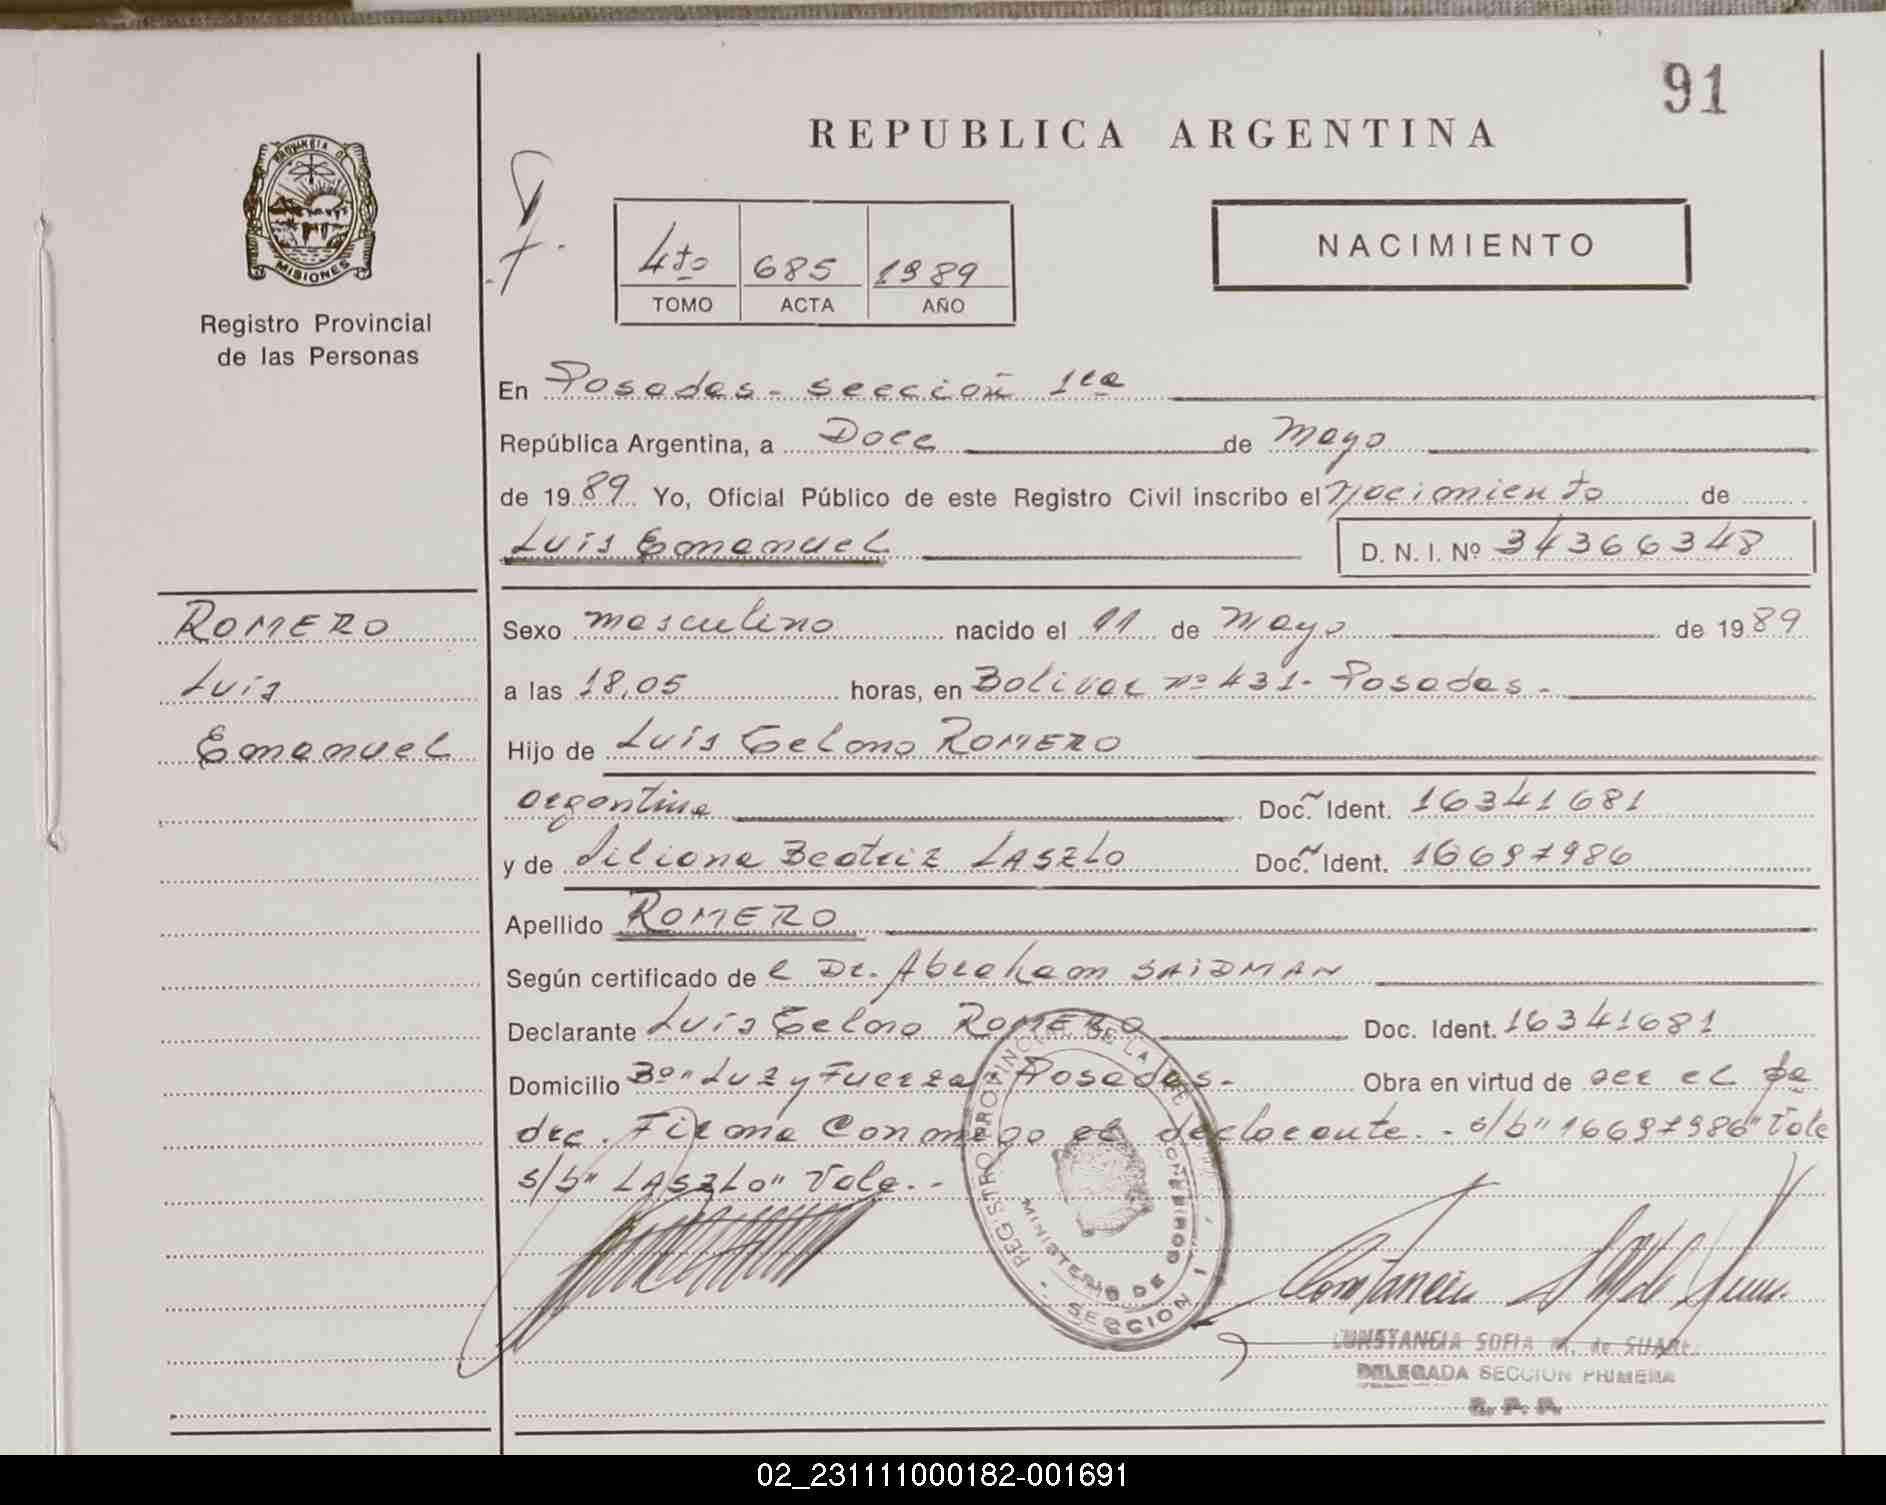 91
REPUBLICA ARGENTINA
PROVINCIA DE
MISIONES
Registro Provincial
de las Personas
4to 685 1989
TOMO ACTA AÑO
NACIMIENTO
En Posadas - sección 1ra
República Argentina, a Doce de Mayo
de 1989 Yo, Oficial Público de este Registro Civil inscribo el Nacimiento de
Luis Emanuel D. N. I. Nº 34366348
ROMERO
Luis
Emanuel
Sexo masculino nacido el 11 de Mayo de 1989
a las 18,05 horas, en Bolivar nº 431 - Posadas -
Hijo de Luis Telmo ROMERO
argentina Doc. Ident. 16341681
y de Liliana Beatriz LASZLO Doc. Ident. 16697986
Apellido ROMERO
Según certificado de l Dr. Abraham SAIDMAN
Declarante Luis Telmo ROMERO Doc. Ident. 16341681
Domicilio Bº "Luz y Fuerza" Posadas - Obra en virtud de ser el pa
dre. Firma conmigo el declarante. - s/b "16697986" Vale
s/b "LASZLO" Vale. -
REGISTRO PROVINCIAL DE LA
MINISTERIO DE GOBIERNO
SECCION 1
CONSTANCIA SOFIA M. de
DELEGADA SECCION PRIMERA
R. P. P.
02_231111000182-001691